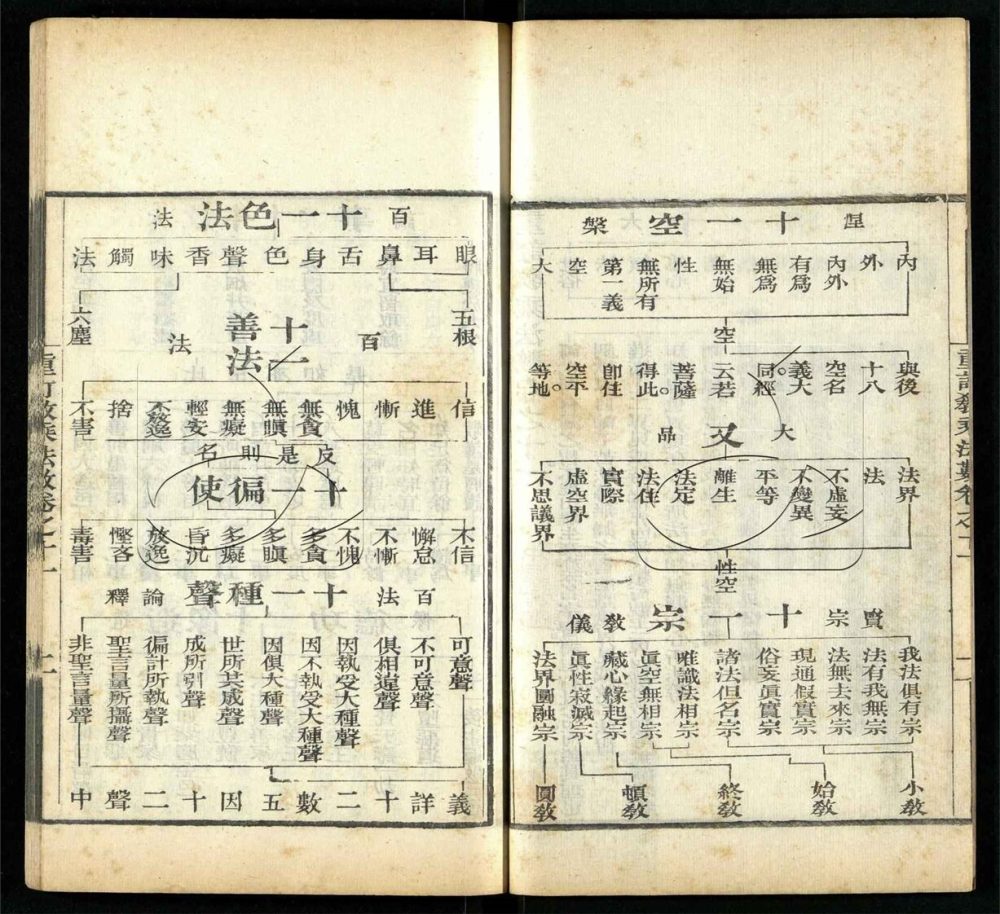 涅 十一空 槃
內
外
內外
有爲
無爲
無始
性
無所有
第一義
空
大
空
與後
十八
空名
義大。
同經
云若
菩薩
得此。
卽住
空平
等地。
大 又 品
法界
法
不虛妄
不變異
平等
離生
法定
法住
實際
虛空界
不思議界
性空
賢宗 十一宗 敎儀
我法俱有宗
法有我無宗
法無去來宗
現通假實宗
俗妄眞實宗
諸法但名宗
唯識法相宗
眞空無相宗
藏心緣起宗
眞性寂滅宗
法界圓融宗
小敎
始敎
終敎
頓敎
圓敎
百 十一色法 法
眼
耳
鼻
舌
身
色
聲
香
味
觸
法
五根
六塵
百 十一善法 法
信
進
慚
愧
無貪
無瞋
無癡
輕安
不放逸
捨
不害
反是則名
十一徧使
不信
懈怠
不慚
不愧
多貪
多瞋
多癡
昏沉
放逸
慳吝
毒害
百法 十一種聲 論釋
可意聲
不可意聲
俱相違聲
因執受大種聲
因不執受大種聲
因俱大種聲
世所共成聲
成所引聲
徧計所執聲
聖言量所攝聲
非聖言量聲
義詳十二數五因十二聲中